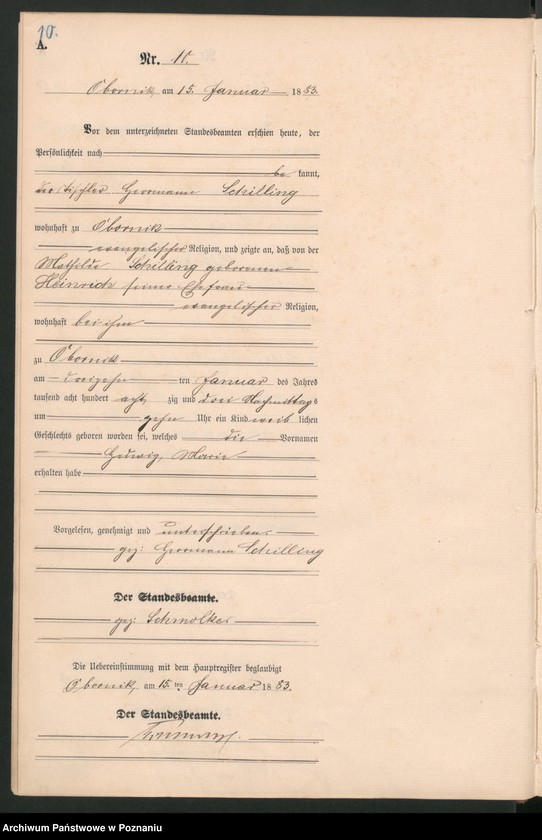 10.
A.
Nr. 10.
Obornik am 15. Januar 1883.
Vor dem unterzeichneten Standesbeamten erschien heute, der
Persönlichkeit nach
be kannt,
der Tischler Hermann Schilling
wohnhaft zu Obornik
evangelischer Religion, und zeigte an, daß von der
Mathilde Schilling geborenen
Heinrich seiner Ehefrau
evangelischer Religion,
wohnhaft bei ihm
zu Obornik
am dreizehn ten Januar des Jahres
tausend acht hundert acht zig und drei Nachmittags
um zehn Uhr ein Kind weib lichen
Geschlechts geboren worden sei, welches die Vornamen
Hedwig, Marie
erhalten habe
Vorgelesen, genehmigt und unterschrieben
gez: Hermann Schilling
Der Standesbeamte.
gez: Schmolke
Die Uebereinstimmung mit dem Hauptregister beglaubigt
Obornik, am 15. ten Januar 18 83.
Der Standesbeamte.
Archiwum Państwowe w Poznaniu